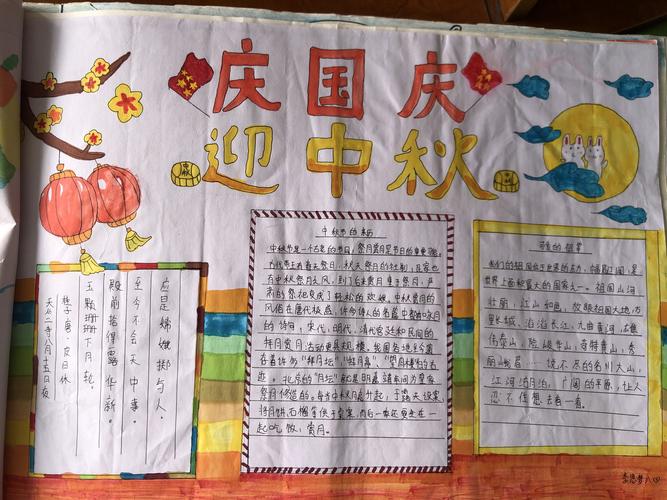 庆国庆
迎中秋
天竺寺八月十五日夜
桂子唐·皮日休
玉颗珊珊下月轮,
殿前拾得露华新。
至今不会天中事,
应是嫦娥掷与人。
中秋节的来历
中秋节是一个古老的节日,祭月赏月是节日的重要习俗。
古代帝王有春天祭日,秋天祭月的社制,民家也
有中秋祭月之风,到了后来赏月重于祭月,严
肃的祭祀变成了轻松的欢娱。中秋赏月的
风俗在唐代极盛,许多诗人的名篇中都有咏月
的诗句,宋代、明代、清代宫廷和民间的
拜月赏月活动更具规模。我国各地至今遗
存着许多"拜月坛""拜月亭""望月楼"的古
迹。北京的"月坛"就是明嘉靖年间为皇家
祭月修造的。每当中秋月亮升起,于露天设案,
将月饼、石榴等供于桌案,
一起吃饭,赏月。
可爱的祖国
我们的祖国位于世界的东方,幅员辽阔,是
世界上面积最大的国家之一。祖国山河
壮丽,江山如画。放眼祖国大地,万
里长城,滔滔长江,九曲黄河,
泰山,险峻华山,奇特黄山,秀
丽峨眉……说不尽的名川大山,
江河湖泊,广阔的平原,让人
忍不住想去看一看。